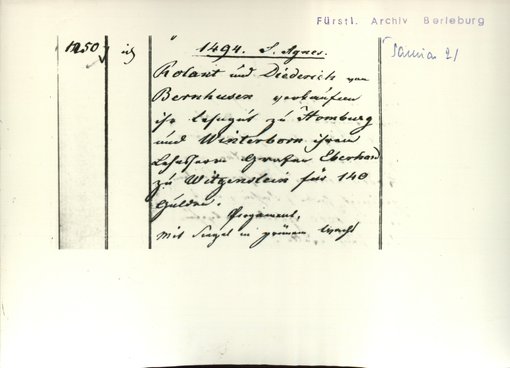 Fürstl. Archiv Berleburg
1250
1494. S. Agnes.
Januar 21
Rolant und Diederich von
Bernhusen verkaufen
ihr Lehngut zu Homburg
und Winterborn ihren
Lehnsherrn Grafen Eberhard
zu Witgenstein für 140
Gulden.
Pergament.
Mit Siegel in grünem Wachs